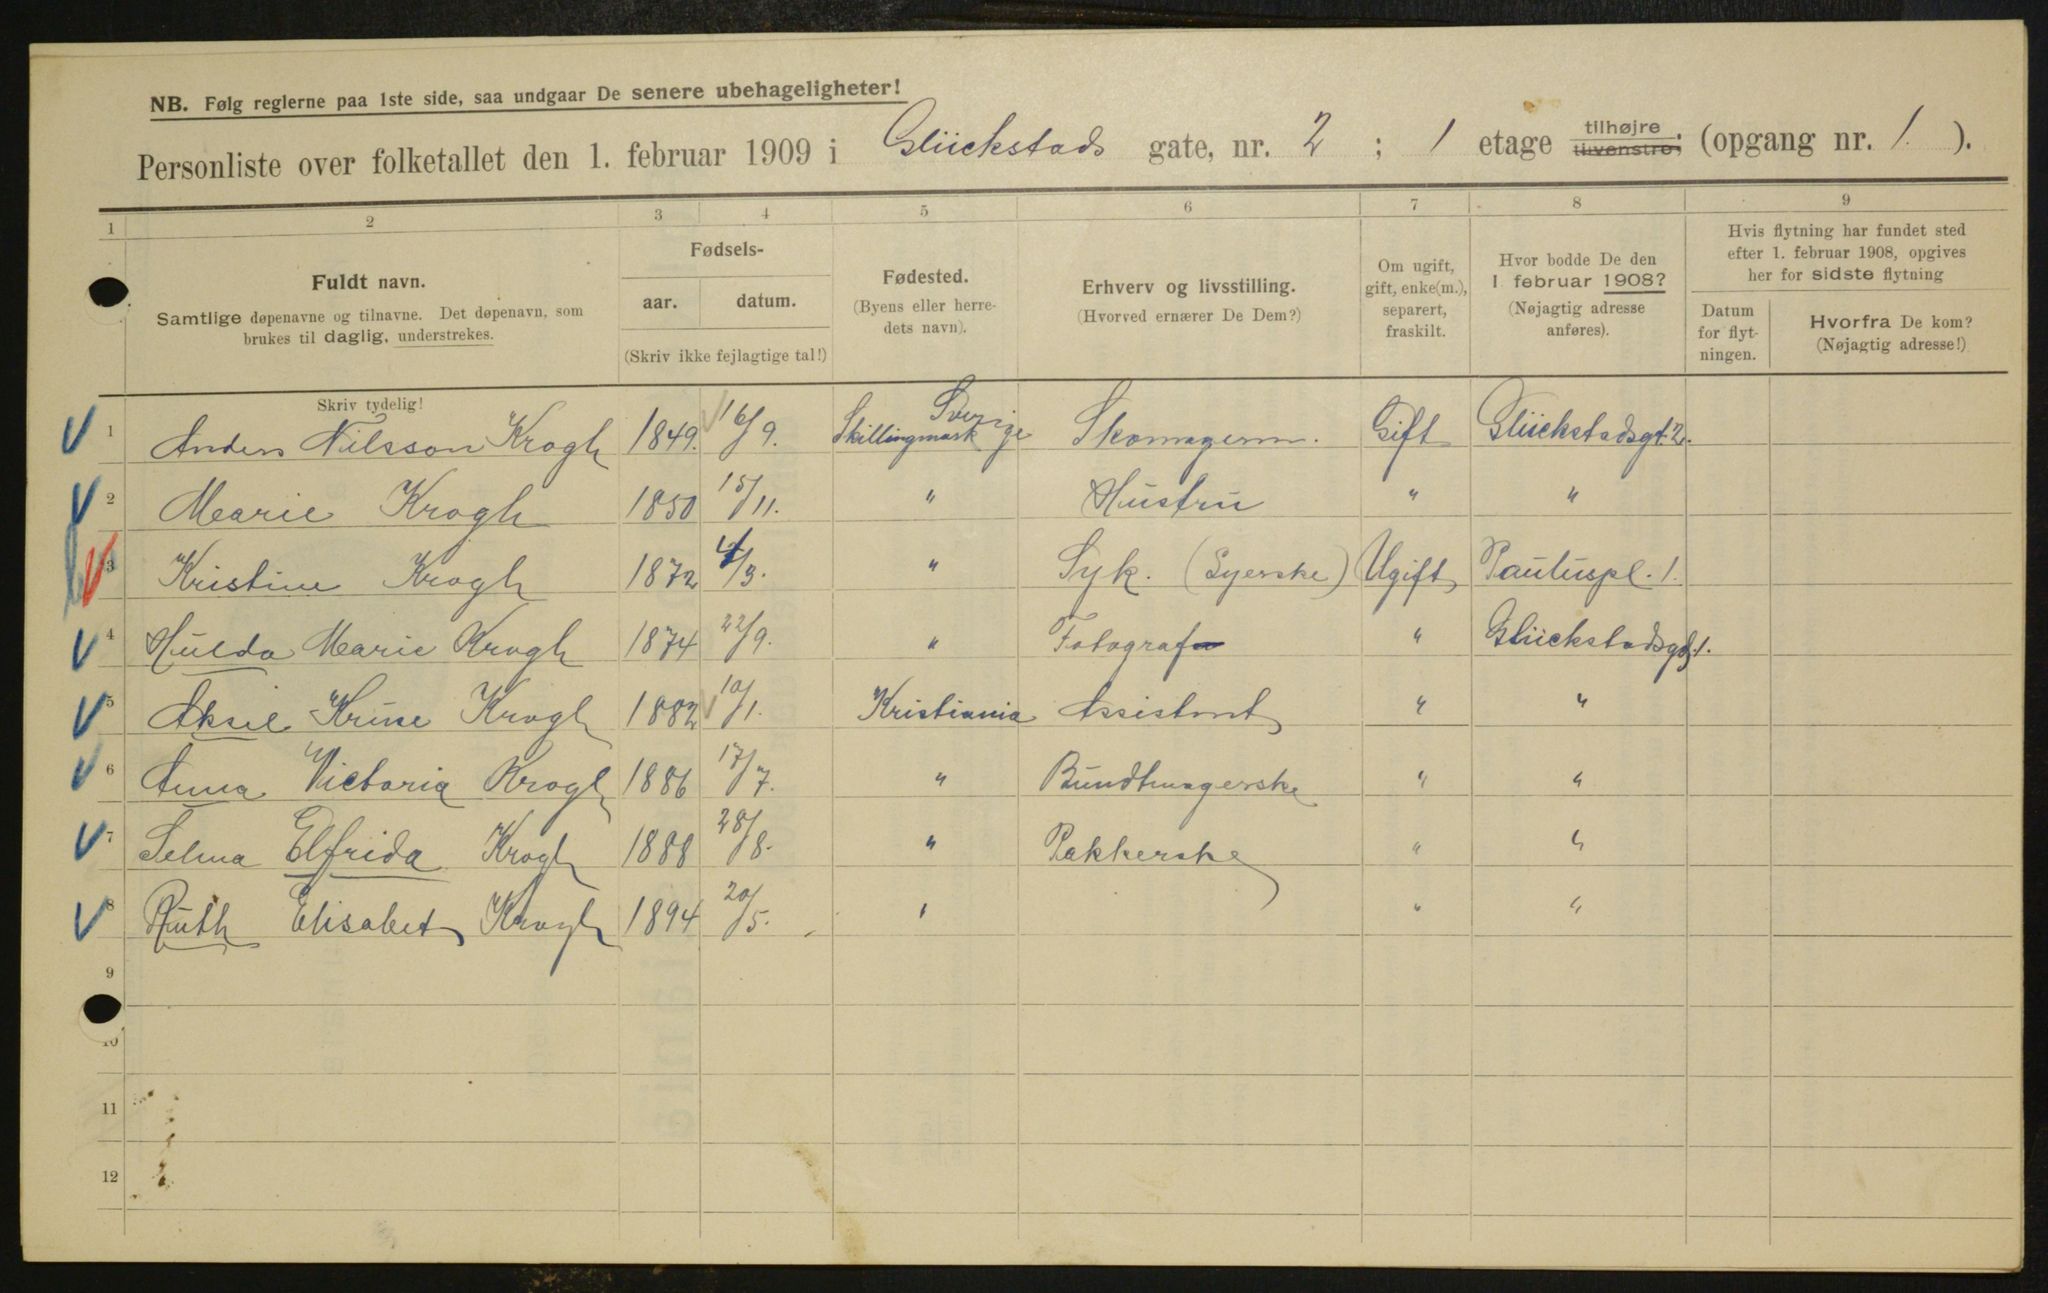 NB. Følg reglerne paa 1ste side, saa undgaar De senere ubehageligheter!
Personliste over folketallet den 1. februar 1909 i Glückstads gate, nr. 2 ; 1 etage tilhøjre, tilvenstre, (opgang nr. 1. ).
1 2 3 4 5 6 7 8 9
Fuldt navn.
Samtlige døpenavne og tilnavne. Det døpenavn, som
brukes til daglig, understrekes.
Skriv tydelig!
Fødsels-
aar. datum.
(Skriv ikke fejlagtige tal!)
Fødested.
(Byens eller herre-
dets navn).
Erhverv og livsstilling.
(Hvorved ernærer De Dem?)
Om ugift,
gift, enke(m.),
separert,
fraskilt.
Hvor bodde De den
1 februar 1908?
(Nøjagtig adresse
anføres).
Hvis flytning har fundet sted
efter 1. februar 1908, opgives
her for sidste flytning
Datum
for flyt-
ningen.
Hvorfra De kom?
(Nøjagtig adresse!)
1 Anders Nilsson Krogh 1849. 16/9. Skillingmark Sverige Skomagerm. Gift Glückstadsgt. 2.
2 Marie Krogh 1850 15/11. " Hustru " "
3 Kristine Krogh 1872 4/3. " Syk. (Syerske) Ugift Pauluspl. 1.
4 Hulda Marie Krogh 1874 22/9. " Fotograf " Glückstadsgt. 1.
5 Aksel Kruse Krogh 1882 10/1. Kristiania Assistent " "
6 Anna Victoria Krogh 1886 17/7. " Bundtmagerske " "
7 Selma Elfrida Krogh 1888 28/8. " Pakkerske " "
8 Ruth Elisabet Krogh 1894 20/5. " " "
9
10
11
12